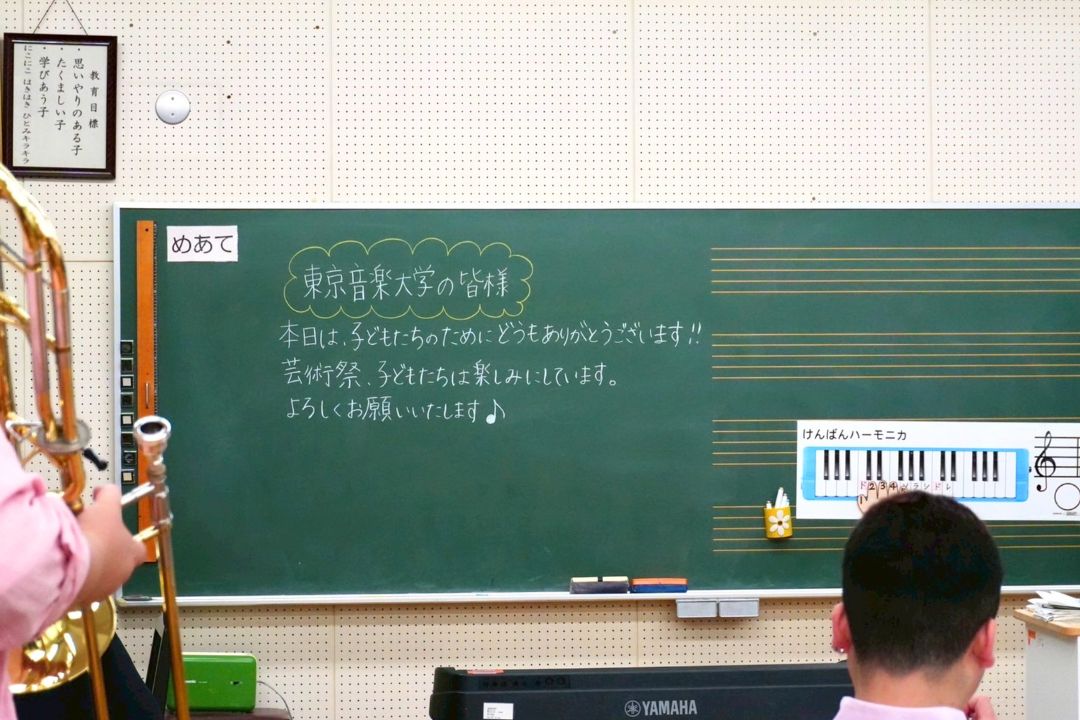 教育目標
・思いやりのある子
・たくましい子
・学びあう子
にこにこ はきはき ひとみキラキラ
めあて
東京音楽大学の皆様
本日は、子どもたちのためにどうもありがとうございます!!
芸術祭、子どもたちは楽しみにしています。
よろしくお願いいたします♪
けんばんハーモニカ
YAMAHA